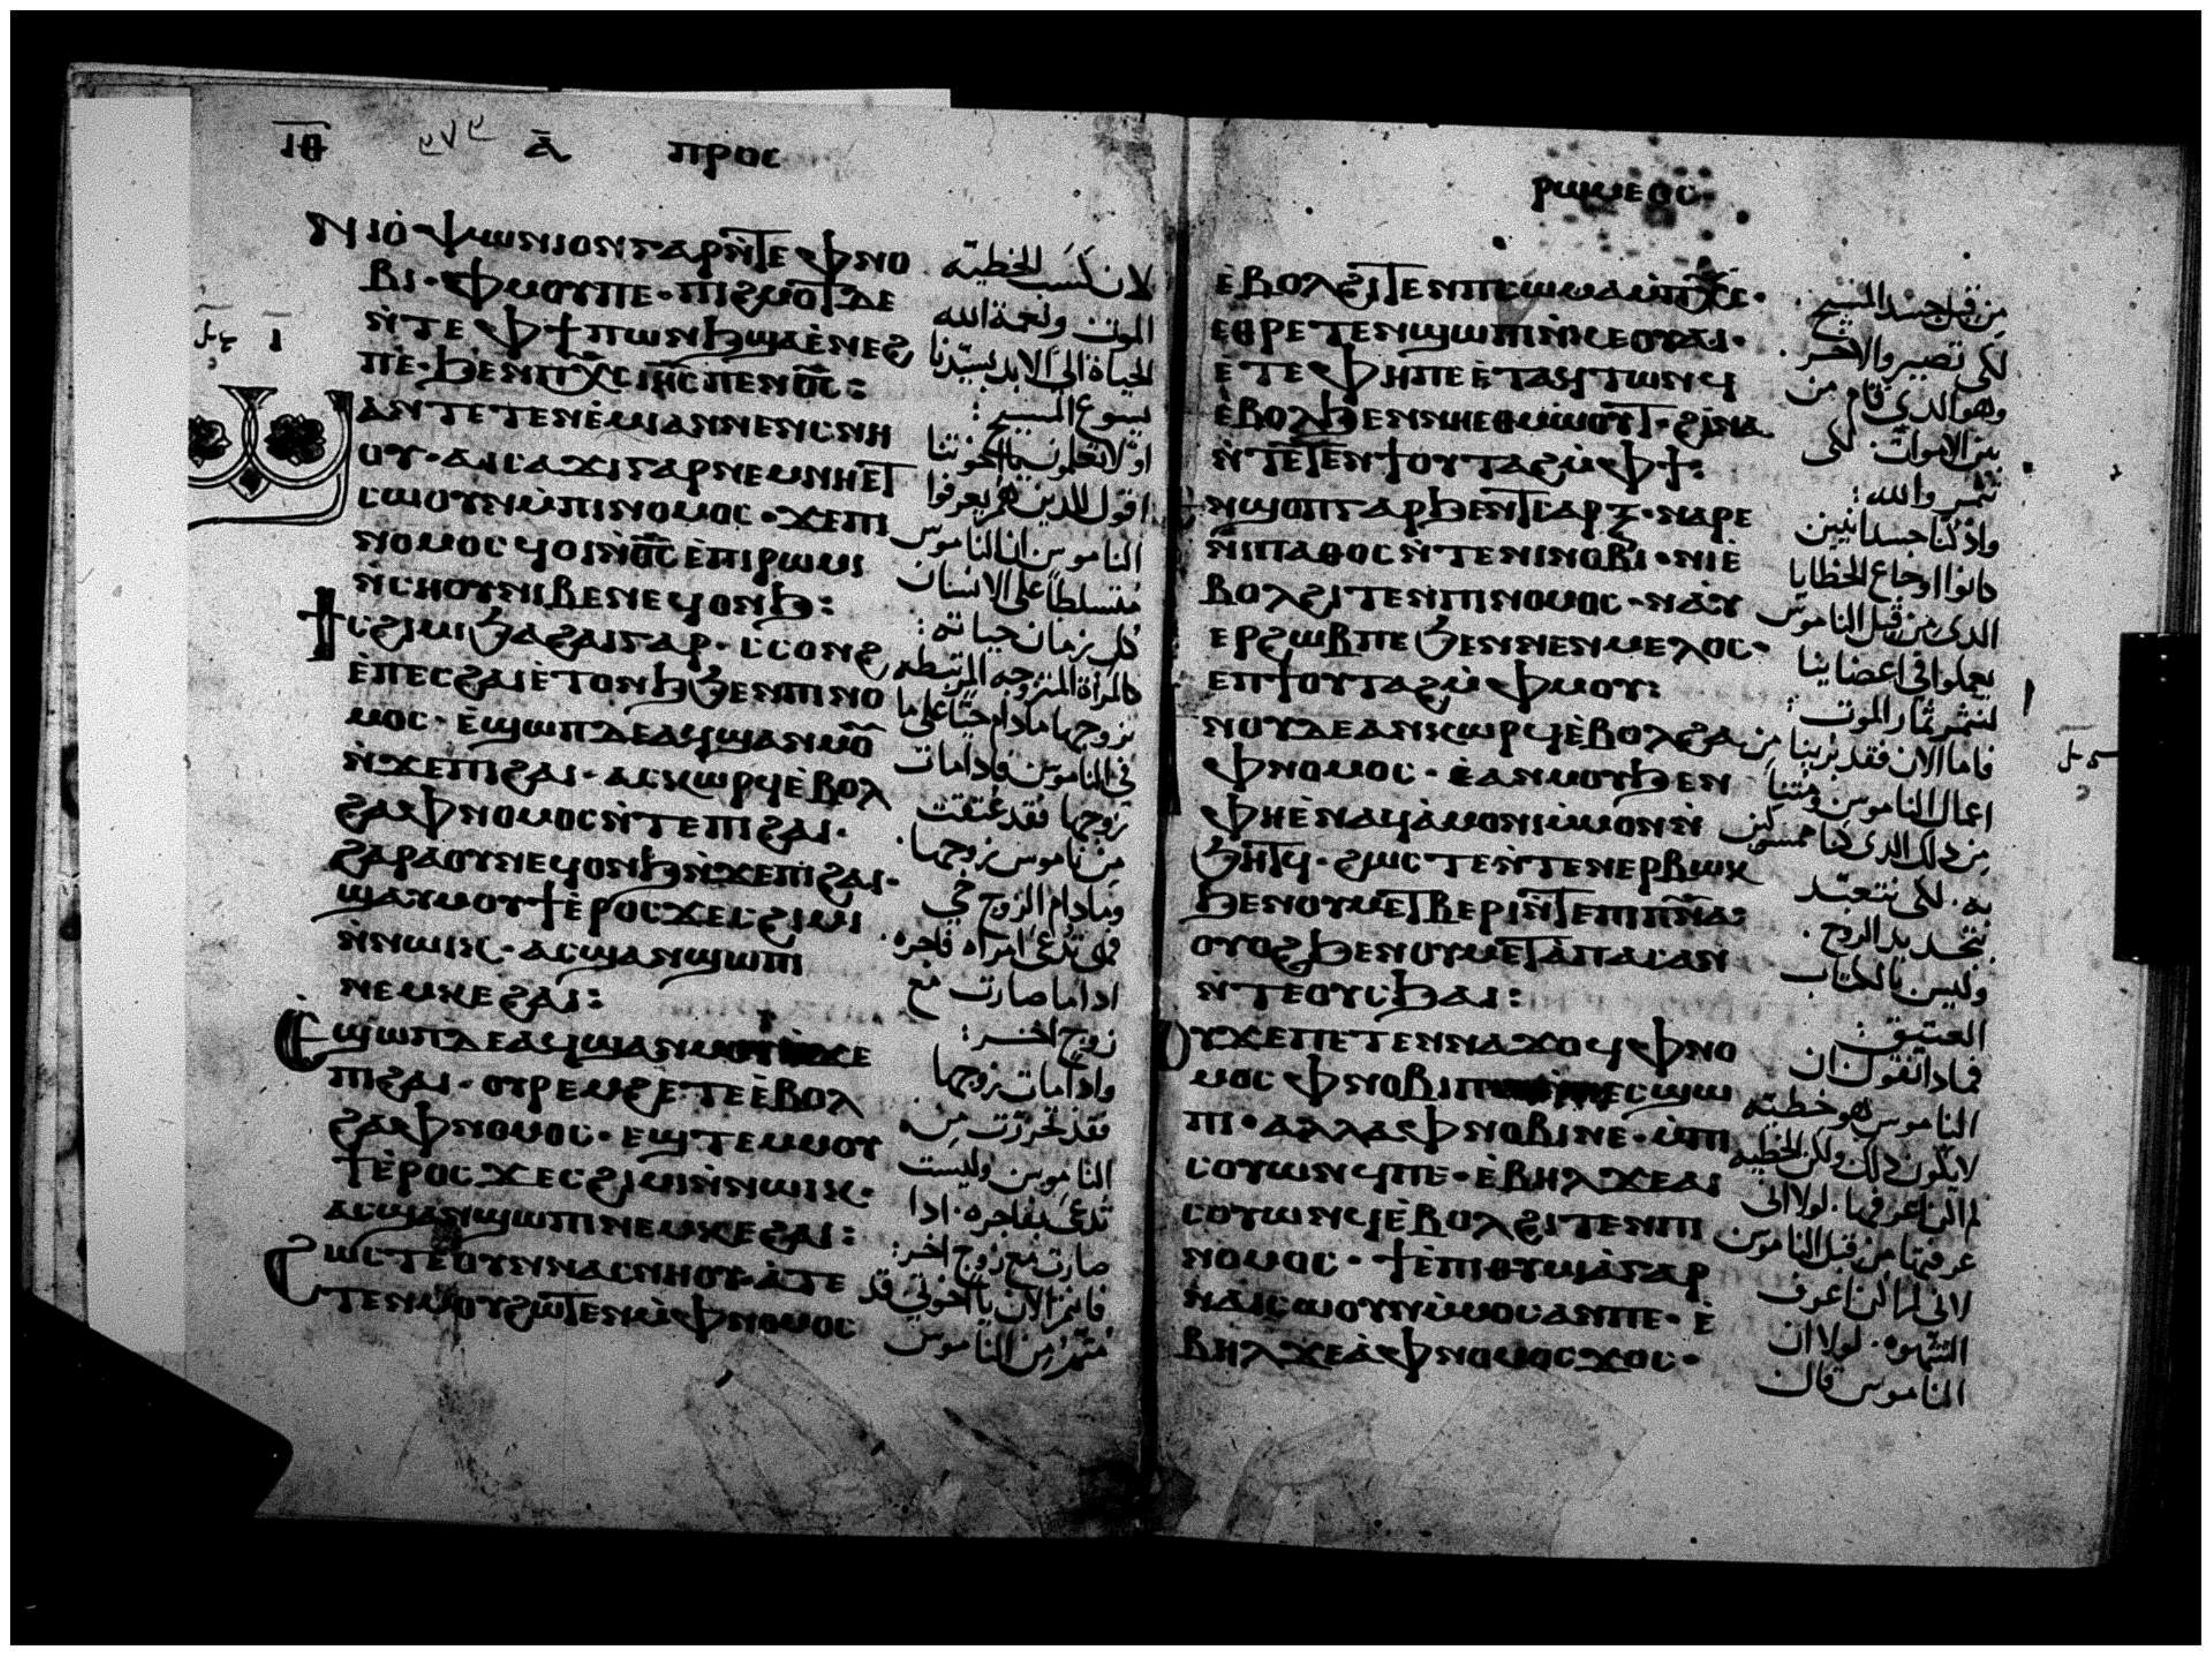 ⲓⲑ ⲁ̅ ⲡⲣⲟⲥ
ⲛⲓⲟ̇ⲯⲱⲛⲓⲟⲛ ⲅⲁⲣ ⲛ̇ⲧⲉ ⲫⲛⲟ
ⲃⲓ · ⲫⲙⲟⲩ ⲡⲉ · ⲡⲓϩⲙⲟⲧ ⲇⲉ
ⲛ̇ⲧⲉ ⲫϯ ⲡⲱⲛϧ ϣⲁⲉ̇ⲛⲉϩ
ⲡⲉ · ϧⲉⲛ ⲡⲭ̅ⲥ ⲓⲏ̅ⲥ ⲡⲉⲛⲟ̅ⲥ :
ⲁⲛ ⲧⲉⲧⲉⲛⲉ̇ⲙⲓ ⲁⲛ ⲛⲉⲛⲥⲛⲏ
ⲟⲩ · ⲁⲓⲥⲁϫⲓ ⲅⲁⲣ ⲛⲉⲙ ⲛⲏⲉⲧ
ⲥⲱⲟⲩⲛ ⲙ̇ⲡⲓⲛⲟⲙⲟⲥ · ϫⲉ ⲡⲓ
ⲛⲟⲙⲟⲥ ϥⲟⲓ ⲛ̇ⲟ̅ⲥ ⲉ̇ⲡⲓⲣⲱⲙⲓ
ⲛ̇ⲥⲏⲟⲩ ⲛⲓⲃⲉⲛ ⲉϥⲟⲛϧ :
ϯⲥϩⲓⲙⲓ ϧⲁ ϩⲁⲓ ⲅⲁⲣ · ⲥⲥⲟⲛϩ
ⲉ̇ⲡⲉⲥϩⲁⲓ ⲉ̇ⲧⲟⲛϧ ϧⲉⲛ ⲡⲓⲛⲟ
ⲙⲟⲥ · ⲉ̇ϣⲱⲡ ⲇⲉ ⲁϥϣⲁⲛⲙⲟ̅
ⲛ̇ϫⲉ ⲡⲓϩⲁⲓ · ⲁⲥⲕⲱⲣϥ ⲉ̇ⲃⲟⲗ
ϩⲁ ⲫⲛⲟⲙⲟⲥ ⲛ̇ⲧⲉ ⲡⲓϩⲁⲓ ·
ϩⲁⲣⲁ ⲟⲩⲛ ⲉϥⲟⲛϧ ⲛ̇ϫⲉ ⲡⲓϩⲁⲓ ·
ϣⲁⲩⲙⲟⲩϯ ⲉ̇ⲣⲟⲥ ϫⲉ ⲥϩⲓⲙⲓ
ⲛ̇ⲛⲱⲓⲕ · ⲁⲥϣⲁⲛϣⲱⲡⲓ
ⲛⲉⲙ ⲕⲉϩⲁⲓ :
ⲉϣⲱⲡ ⲇⲉ ⲁϥϣⲁⲛⲙⲟⲩ ϫⲉ
ⲡⲓϩⲁⲓ · ⲟⲩⲣⲉⲙϩⲉ ⲧⲉ ⲉ̇ⲃⲟⲗ
ϩⲁ ⲫⲛⲟⲙⲟⲥ · ⲉϣⲧⲉⲙⲙⲟⲩ
ϯ ⲉ̇ⲣⲟⲥ ϫⲉ ⲥϩⲓⲙⲓ ⲛ̇ⲛⲱⲓⲕ ·
ⲁⲥϣⲁⲛϣⲱⲡⲓ ⲛⲉⲙ ⲕⲉϩⲁⲓ :
ϩⲱⲥⲧⲉ ⲟⲩⲛ ⲛⲁⲥⲛⲏⲟⲩ · ⲁ̇ⲧⲉ
ⲧⲉⲛⲙⲟⲩ ϩⲱⲧⲉⲛ ⲙ̇ⲫⲛⲟⲙⲟⲥ
لان كسب الخطية
الموت ونعمة الله
الحياة الى الابد بسيدنا
يسوع المسيح :
او لا تعلمون يا اخوتنا
اقول للذين هم يعرفوا
الناموس ان الناموس
متسلطاً على الانسان
كل زمان حياته :
كالمراة المتزوجه المرتبطه
بزوجها مادام حيًا على ما
في الناموس فاذا مات
زوجها فقد عتقت
من ناموس زوجها .
وما دام الزوج حي
فهي تدعى امراه فاجره .
اذا ما صارت مع
زوج اخر :
واذا مات زوجها
فقد تحررت من
الناموس وليست
تدعى بفاجره . اذا
صارت مع زوج اخر :
فانتم الان يا اخوتي قد
متم من الناموس
ⲣⲱⲙⲉⲟⲥ
ⲉ̇ⲃⲟⲗϩⲓⲧⲉⲛ ⲡⲥⲱⲙⲁ ⲙ̇ⲡⲭ̅ⲥ ·
ⲉⲑⲣⲉⲧⲉⲛϣⲱⲡⲓ ⲛ̇ⲕⲉⲟⲩⲁⲓ ·
ⲉ̇ⲧⲉ ⲫⲏ ⲡⲉ ⲉ̇ⲧⲁϥⲧⲱⲛϥ
ⲉ̇ⲃⲟⲗϧⲉⲛ ⲛⲏⲉⲑⲙⲱⲟⲩⲧ · ϩⲓⲛⲁ
ⲛ̇ⲧⲉⲧⲉⲛϯⲟⲩⲧⲁϩ ⲙ̇ⲫϯ :
ⲛϣⲟⲡ ⲅⲁⲣ ϧⲉⲛ ⲧⲥⲁⲣⲝ · ⲛⲁⲣⲉ
ⲛⲓⲡⲁⲑⲟⲥ ⲛ̇ⲧⲉ ⲛⲓⲛⲟⲃⲓ · ⲛⲓⲉ̇
ⲃⲟⲗϩⲓⲧⲉⲛ ⲡⲓⲛⲟⲙⲟⲥ · ⲛⲁⲩ
ⲉⲣϩⲱⲃ ⲡⲉ ϧⲉⲛ ⲛⲉⲛⲙⲉⲗⲟⲥ ·
ⲉⲡϯⲟⲩⲧⲁϩ ⲙ̇ⲫⲙⲟⲩ :
ⲛⲟⲩ ⲇⲉ ⲁⲛⲕⲱⲣϥ ⲉ̇ⲃⲟⲗϩⲁ
ⲫⲛⲟⲙⲟⲥ · ⲉ̇ⲁⲛⲙⲟⲩ ϧⲉⲛ
ⲫⲏ ⲉ̇ⲛⲁϥⲁ̇ⲙⲟⲛⲓ ⲙ̇ⲙⲟⲛ ⲛ̇
ϧⲏⲧϥ · ϩⲱⲥⲧⲉ ⲛ̇ⲧⲉⲛⲉⲣⲃⲱⲕ
ϧⲉⲛ ⲟⲩⲙⲉⲧⲃⲉⲣⲓ ⲛ̇ⲧⲉ ⲡⲓⲡ̅ⲛ̅ⲁ :
ⲟⲩⲟϩ ϧⲉⲛ ⲟⲩⲙⲉⲧⲁ̇ⲡⲁⲥ ⲁⲛ
ⲛ̇ⲧⲉ ⲟⲩⲥϧⲁⲓ :
ⲟⲩ ϫⲉ ⲡⲉⲧⲉⲛⲛⲁϫⲟϥ ⲫⲛⲟ
ⲙⲟⲥ ⲫⲛⲟⲃⲓ ⲡ ⲛⲉⲥϣⲱ
ⲡⲓ · ⲁⲗⲗⲁ ⲫⲛⲟⲃⲓ ⲛⲉ · ⲙ̇ⲡⲓ
ⲥⲟⲩⲱⲛϥ ⲡⲉ · ⲉ̇ⲃⲏⲗ ϫⲉ ⲁⲓ
ⲥⲟⲩⲱⲛϥ ⲉ̇ⲃⲟⲗϩⲓⲧⲉⲛ ⲡⲓ
ⲛⲟⲙⲟⲥ · ϯⲉ̇ⲡⲓⲑⲩⲙⲓⲁ̇ ⲅⲁⲣ
ⲛⲁⲓⲥⲱⲟⲩⲛ ⲙ̇ⲙⲟⲥ ⲁⲛ ⲡⲉ · ⲉ̇
ⲃⲏⲗ ϫⲉ ⲁ̇ ⲫⲛⲟⲙⲟⲥ ϫⲟⲥ ·
من قبل جسد المسيح .
لكي تصيروا لاخر .
وهو الذي قام من
بين الاموات . لكي
تثمروا لله :
واذ كنا جسدانيين
كانوا اوجاع الخطايا
الذي من قبل الناموس
يعملوا في اعضاينا
لنثمر ثمار الموت :
فاما الان فقد بزينا من
اعمال الناموس ومتنا
من ذلك الذي كنا متمسكين
به . لكي نتعبد
بتجديد الروح .
وليس بالكتاب
العتيق :
فماذا نقول ان
الناموس هو خطيه
لا يكون ذلك ولكن الخطيه
لم اكن اعرفها . لولا اني
عرفتها من قبل الناموس
لاني لم اكن اعرف
الشهوه . لولا ان
الناموس قال